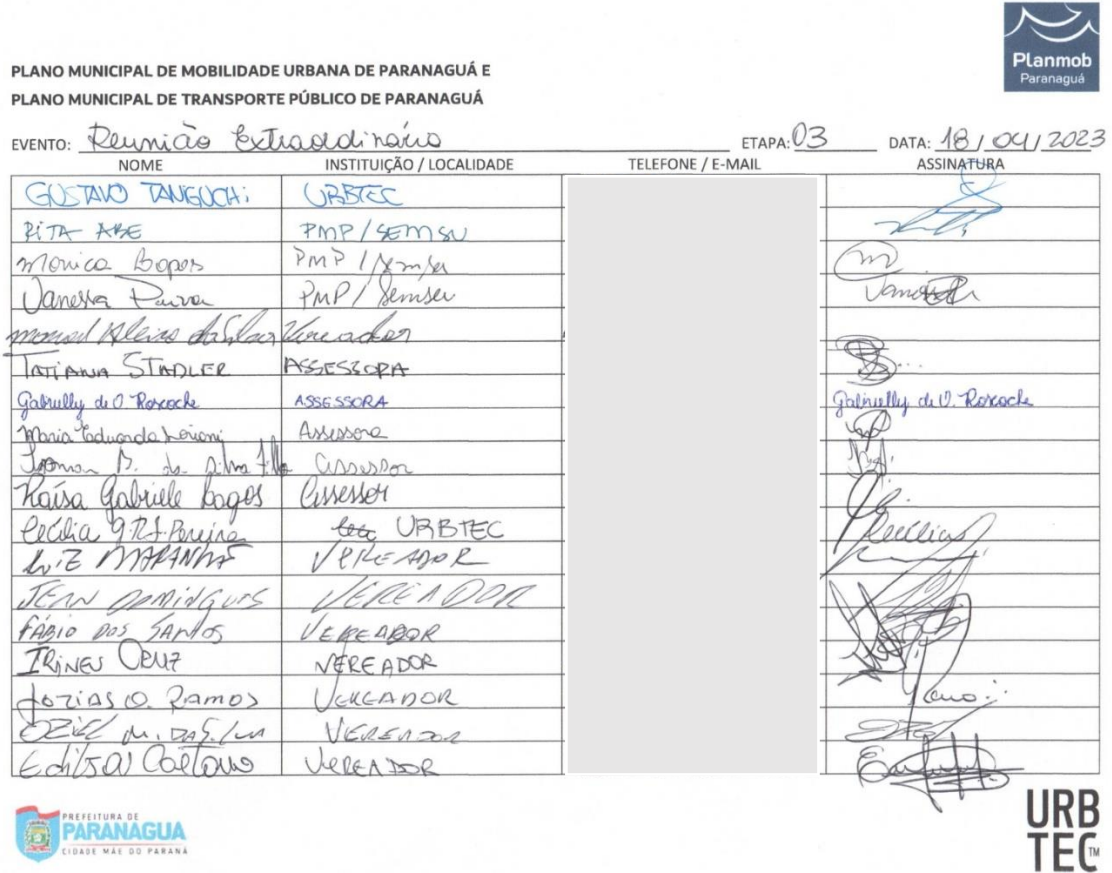 Planmob
Paranaguá
PLANO MUNICIPAL DE MOBILIDADE URBANA DE PARANAGUÁ E
PLANO MUNICIPAL DE TRANSPORTE PÚBLICO DE PARANAGUÁ
EVENTO: Reunião Extraordinário ETAPA: 03 DATA: 18/04/2023
NOME INSTITUIÇÃO / LOCALIDADE TELEFONE / E-MAIL ASSINATURA
GUSTAVO TANIGUCHI URBTEC
RITA ABE PMP/SEMSU
Monica PMP/Semsu
Vanessa PMP/Semsu Vanessa
da Silva Vereador
TATIANA STADLER ASSESSORA
Gabrielly de O. Roscoche ASSESSORA Gabrielly de O. Roscoche
Maria Eduarda Assessora
da Silva Filho assessor
Raísa Gabriele Lagos Assessor
Cecília Pereira URBTEC Cecília
LUIZ MARANHÃO VEREADOR
JEAN DOMINGUES VEREADOR
FÁBIO DOS SANTOS VEREADOR
IRINEU CRUZ VEREADOR
Jozias O. Ramos VEREADOR
OZIEL M. DA SILVA VEREADOR
Edilson Caetano VEREADOR
PREFEITURA DE
PARANAGUA
CIDADE MÃE DO PARANÁ
URB
TEC™